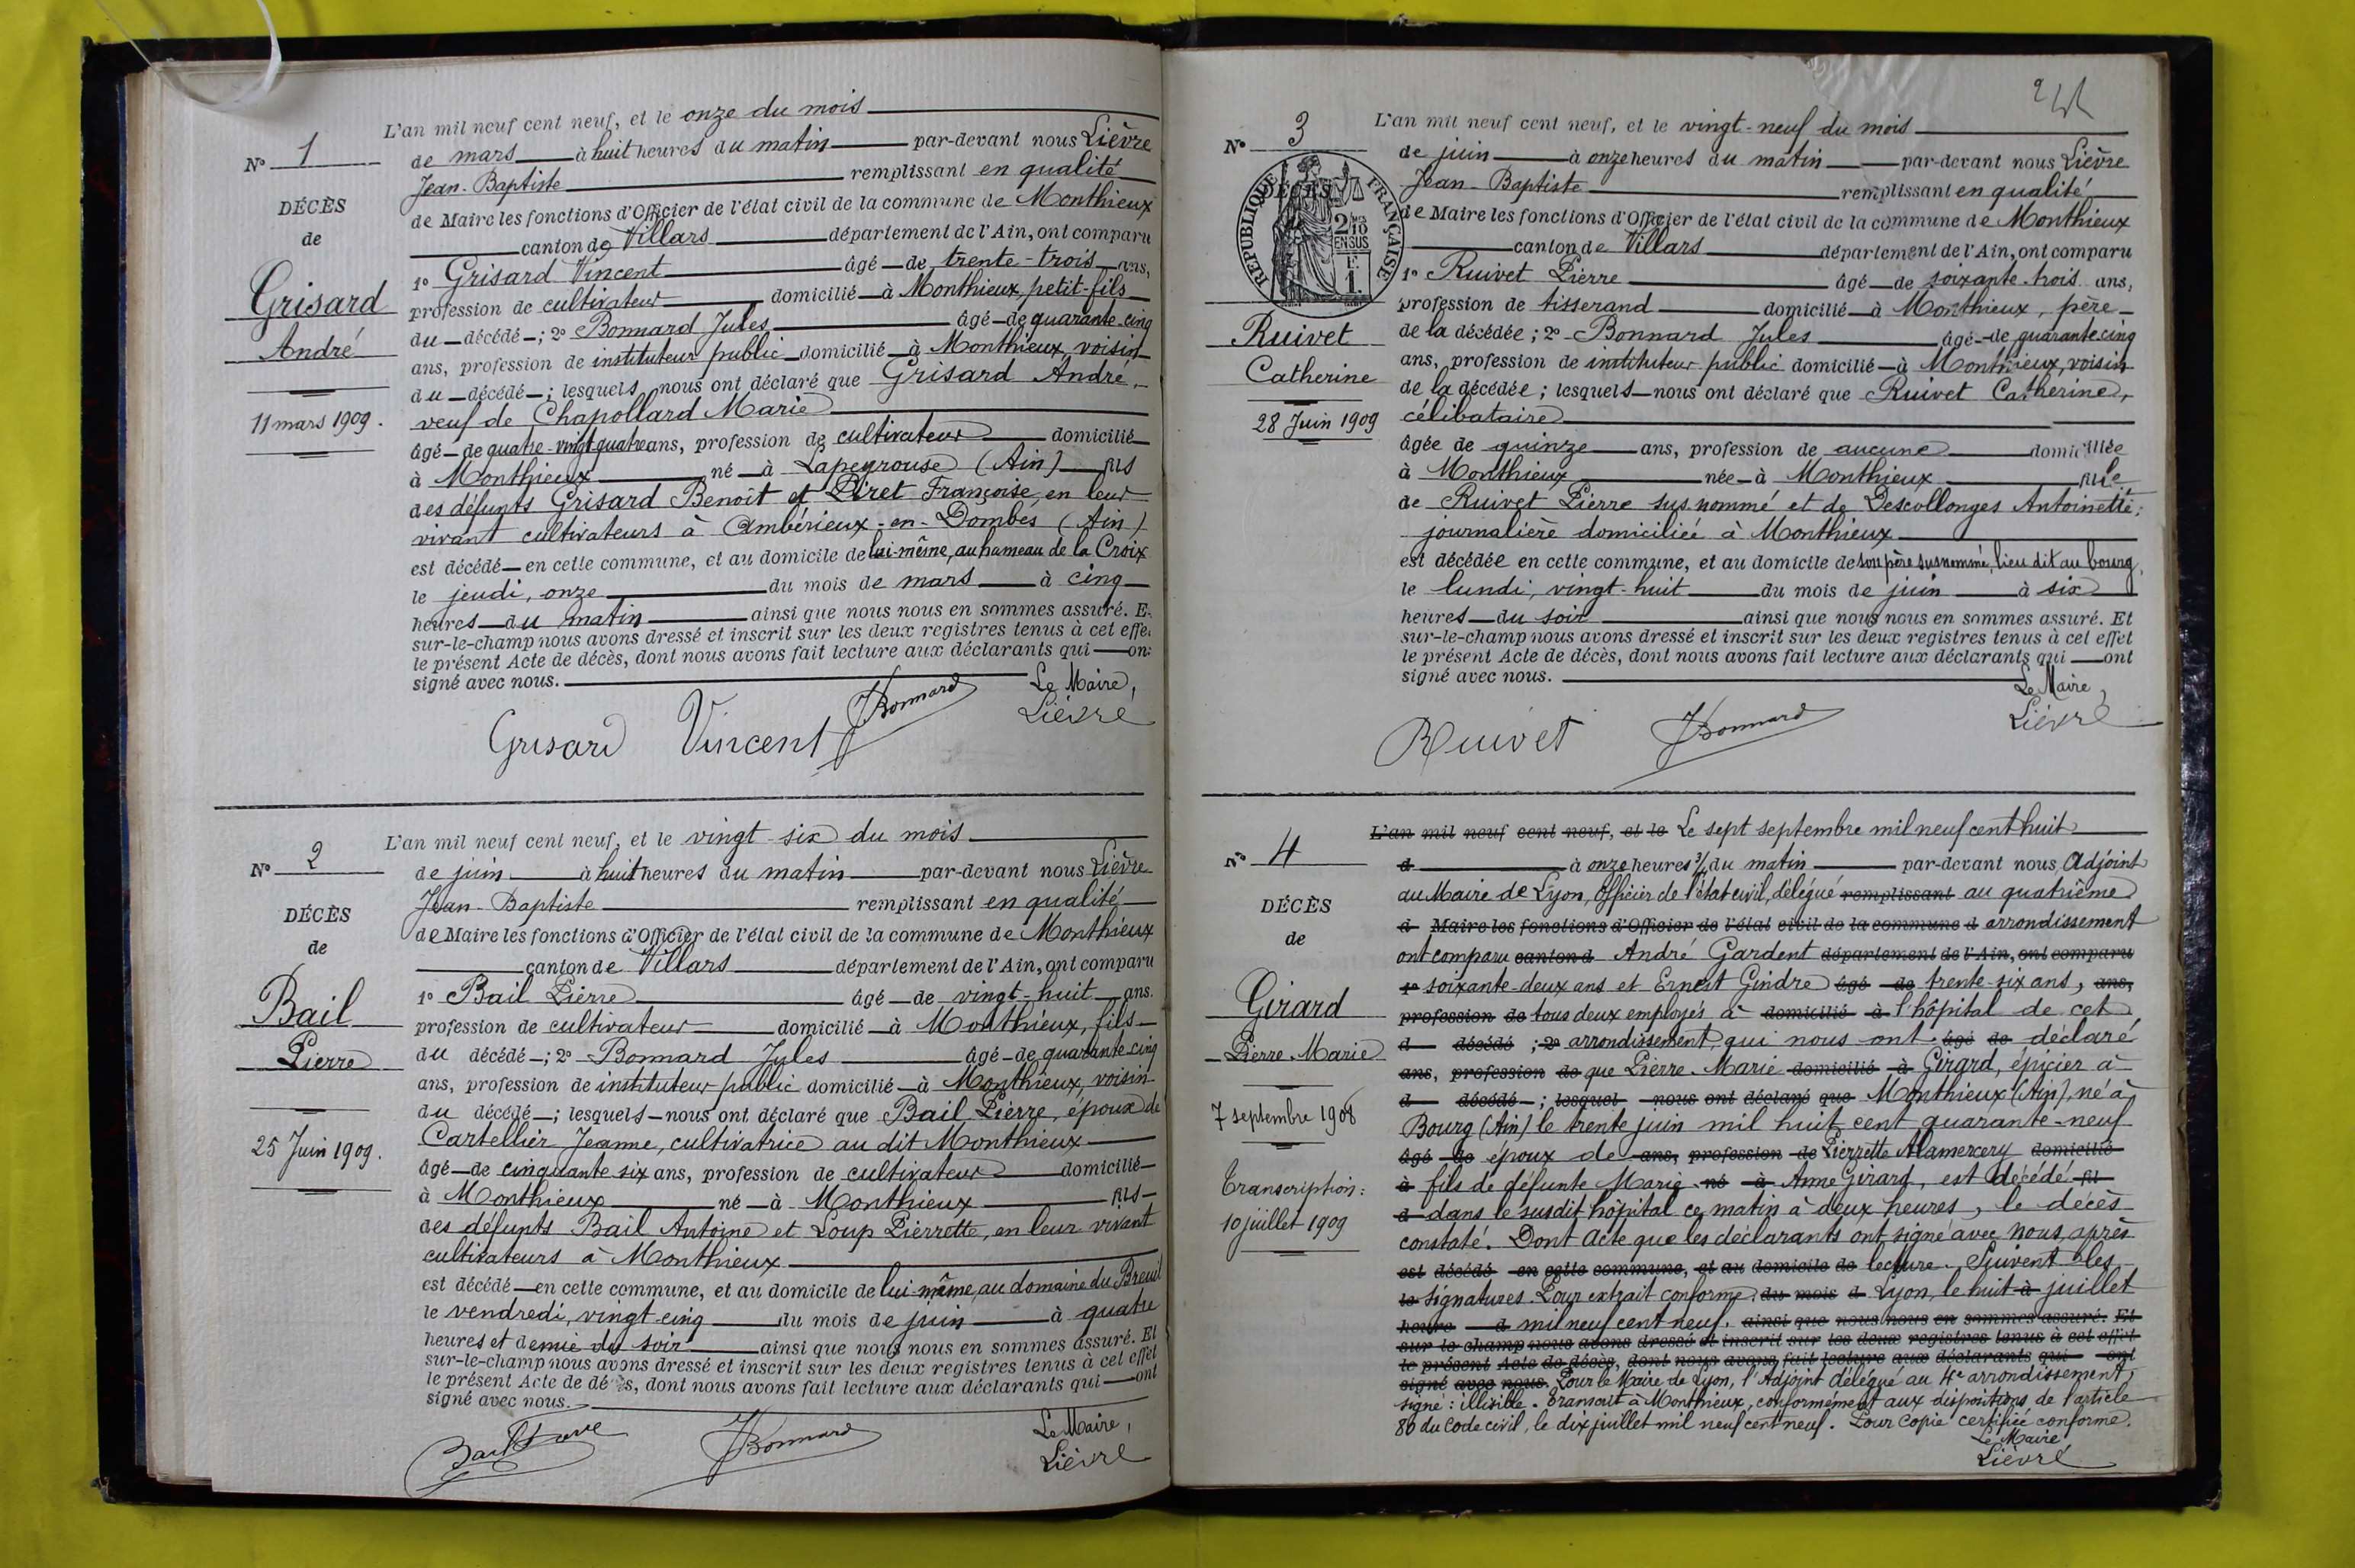 L'an mil neuf cent neuf, et le onze du mois
N° 1
de mars à huit heures du matin par-devant nous Lièvre
Jean-Baptiste remplissant en qualité
DÉCÈS
de Maire les fonctions d'Officier de l'état civil de la commune de Monthieux
de
canton de Villars département de l'Ain, ont comparu
1° Grisard Vincent âgé de trente-trois ans,
Grisard
profession de cultivateur domicilié à Monthieux, petit-fils
du décédé ; 2° Bonnard Jules âgé de quarante-cinq
André
ans, profession de instituteur public domicilié à Monthieux, voisin
du décédé ; lesquels nous ont déclaré que Grisard André,
11 mars 1909.
veuf de Chapollard Marie
âgé de quatre-vingt quatre ans, profession de cultivateur domicilié
à Monthieux né à Lapeyrouse (Ain) fils
des défunts Grisard Benoît et Piret Françoise, en leur
vivant cultivateurs à Ambérieux-en-Dombes (Ain)
est décédé en cette commune, et au domicile de lui-même, au hameau de la Croix
le jeudi, onze du mois de mars à cinq
heures du matin ainsi que nous nous en sommes assuré. E
sur-le-champ nous avons dressé et inscrit sur les deux registres tenus à cet effe
le présent Acte de décès, dont nous avons fait lecture aux déclarants qui on
signé avec nous.
Le Maire,
Grisard Vincent JBonnard Lièvre
L'an mil neuf cent neuf, et le vingt-six du mois
N° 2
de juin à huit heures du matin par-devant nous Lièvre
Jean-Baptiste remplissant en qualité
DÉCÈS
de Maire les fonctions d'Officier de l'état civil de la commune de Monthieux
de
canton de Villars département de l'Ain, ont comparu
1° Bail Pierre âgé de vingt-huit ans.
Bail
profession de cultivateur domicilié à Monthieux, fils
Pierre
du décédé ; 2° Bonnard Jules âgé de quarante-cinq
ans, profession de instituteur public domicilié à Monthieux, voisin
du décédé ; lesquels nous ont déclaré que Bail Pierre, époux de
25 Juin 1909.
Cartellier Jeanne, cultivatrice au dit Monthieux
âgé de cinquante six ans, profession de cultivateur domicilié
à Monthieux né à Monthieux fils
des défunts Bail Antoine et Loup Pierrette, en leur vivant
cultivateurs à Monthieux
est décédé en cette commune, et au domicile de lui-même, au domaine du Breuil
le vendredi, vingt-cinq du mois de juin à quatre
heures et demie du soir ainsi que nous nous en sommes assuré. Et
sur-le-champ nous avons dressé et inscrit sur les deux registres tenus à cet effet
le présent Acte de décès, dont nous avons fait lecture aux déclarants qui ont
signé avec nous.
Le Maire,
Bail JBonnard Lièvre
L'an mil neuf cent neuf, et le vingt-neuf du mois
N° 3
de juin à onze heures du matin par-devant nous Lièvre
Jean-Baptiste remplissant en qualité
RÉPUBLIQUE FRANÇAISE
DÉCÈS
2/10 EN SUS
F. 1.
de Maire les fonctions d'Officier de l'état civil de la commune de Monthieux
canton de Villars département de l'Ain, ont comparu
1° Ruivet Pierre âgé de soixante-trois ans,
profession de tisserand domicilié à Monthieux, père
Ruivet
de la décédée ; 2° Bonnard Jules âgé de quarante-cinq
ans, profession de instituteur public domicilié à Monthieux, voisin
Catherine
de la décédée ; lesquels nous ont déclaré que Ruivet Catherine,
28 Juin 1909
célibataire
âgée de quinze ans, profession de aucune domiciliée
à Monthieux née à Monthieux fille
de Ruivet Pierre sus-nommé et de Descollonges Antoinette,
journalière domiciliée à Monthieux
est décédée en cette commune, et au domicile de son père susnommé, lieu dit au bourg,
le lundi, vingt-huit du mois de juin à six
heures du soir ainsi que nous nous en sommes assuré. Et
sur-le-champ nous avons dressé et inscrit sur les deux registres tenus à cet effet
le présent Acte de décès, dont nous avons fait lecture aux déclarants qui ont
signé avec nous.
Le Maire,
Ruivet JBonnard Lièvre
L'an mil neuf cent neuf, et le Le sept septembre mil neuf cent huit
N° 4
d à onze heures 3/4 du matin par-devant nous Adjoint
au Maire de Lyon, Officier de l'état civil, délégué remplissant au quatrième
DÉCÈS
d Maire les fonctions d'Officier de l'état civil de la commune d arrondissement
de
ont comparu canton d André Gardent département de l'Ain, ont comparu
1° soixante-deux ans et Ernest Gindre âgé de trente-six ans, ans,
Girard
profession de tous deux employés à domicilié à l'hôpital de cet
d décédé ; 2° arrondissement, qui nous ont âgé de déclaré
Pierre-Marie
ans, profession de que Pierre-Marie domicilié à Girard, épicier à
d décédé ; lesquel nous ont déclaré que Monthieux (Ain), né à
7 septembre 1908
Bourg (Ain) le trente juin mil huit cent quarante-neuf
âgé de époux de ans, profession de Pierrette Alamercery domicilié
Transcription :
à fils de défunte Marie né à Anne Girard, est décédé fil
10 juillet 1909
d dans le susdit hôpital ce matin à deux heures, le décès
constaté. Dont Acte que les déclarants ont signé avec nous, après
est décédé en cette commune, et au domicile de lecture. Suivent les
le signatures. Pour extrait conforme. du mois d Lyon, le huit à juillet
heure d mil neuf cent neuf. ainsi que nous nous en sommes assuré. Et
sur-le-champ nous avons dressé et inscrit sur les deux registres tenus à cet effet
le présent Acte de décès, dont nous avons fait lecture aux déclarants qui ont
signé avec nous. Pour le Maire de Lyon, l'Adjoint délégué au 4e arrondissement,
signé : illisible. Transcrit à Monthieux, conformément aux dispositions de l'article
80 du Code civil, le dix juillet mil neuf cent neuf. Pour copie certifiée conforme.
Le Maire
Lièvre